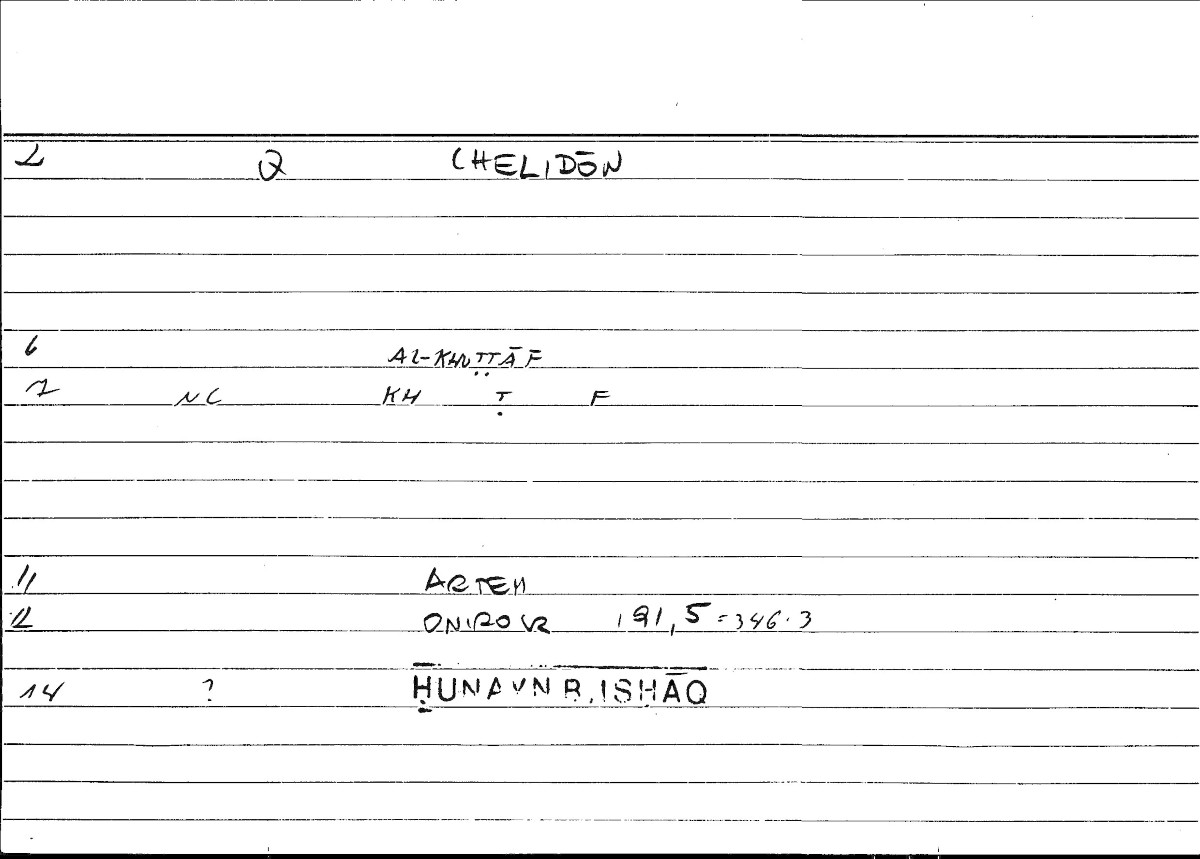 2 Q CHELIDŌN
6 AL-KHUṬṬĀF
7 NC KH Ṭ F
11 ARTEM
12 ONIROCR 191,5=346.3
14 ? ḤUNAYN B. ISḤĀQ